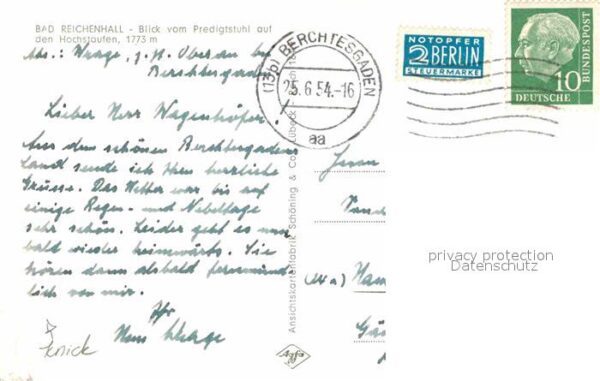 BAD REICHENHALL - Blick vom Predigtstuhl auf
den Hochstaufen, 1773 m
Abs.: Wrage, z. Zt. Oberau bei
Berchtesgaden
Lieber Herr Wagenhöfer!
Aus dem schönen Berchtesgadener
Land sende ich Ihnen herzliche
Grüsse. Das Wetter war bis auf
einige Regen- und Nebeltage
sehr schön. Leider geht es nun
bald wieder heimwärts. Sie
hören dann alsbald fernmünd-
lich von mir.
Ihr
Hans Wrage
knick
Ansichtskartenfabrik Schöning & Co., Lübeck
Agfa
(13b) BERCHTESGADEN
25.6.54.-16
aa
NOTOPFER
2 BERLIN
STEUERMARKE
10
DEUTSCHE
BUNDESPOST
Herrn
(24a) Ham
privacy protection
Datenschutz